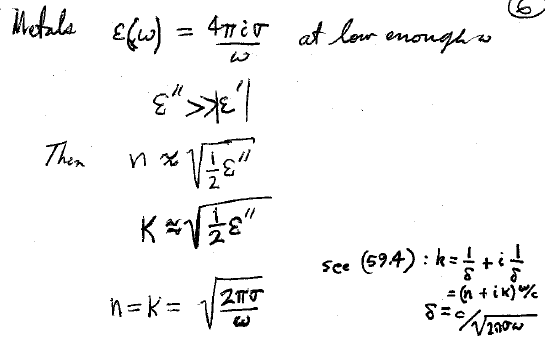 6
Metals ε(ω) = 4πiσ/ω at low enough ω
ε″ >> |ε′|
Then n ≈ √(1/2 ε″)
K ≈ √(1/2 ε″)
see (59.4) : k = 1/δ + i 1/δ
= (n + iK) ω/c
n = K = √(2πσ/ω)
δ = c/√(2πσω)